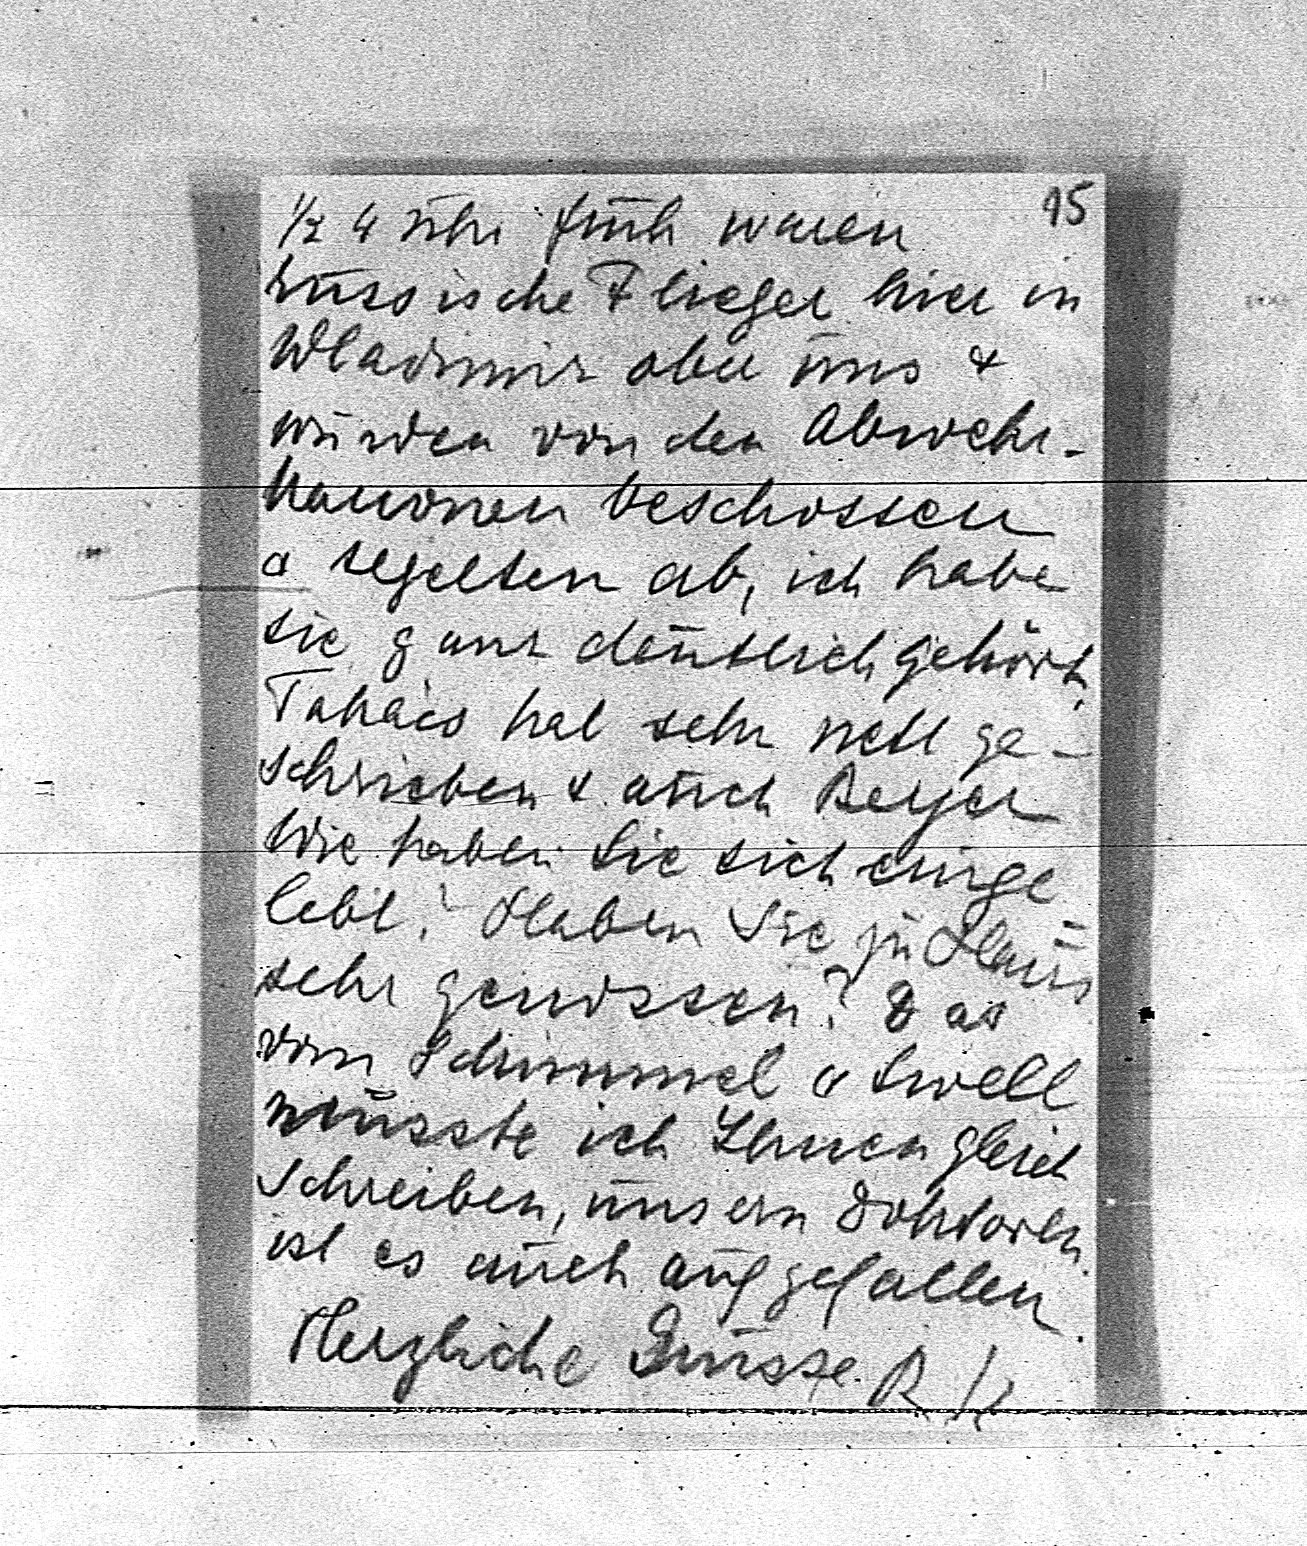 15
1/2 4 Uhr früh waren
russische Flieger hier in
Wladimir ober uns &
wurden von den Abwehr-
kanonen beschossen
u segelten ab, ich habe
sie ganz deutlich gehört,
Takács hat sehr nett ge-
schrieben & auch Beyer
Wie haben Sie sich einge
lebt? Haben Sie zu Haus
sehr genossen? Das
vom Schimmel u
musste ich Ihnen gleich
schreiben, unsern Doktoren
ist es auch aufgefallen.
Herzliche Grüsse. R K